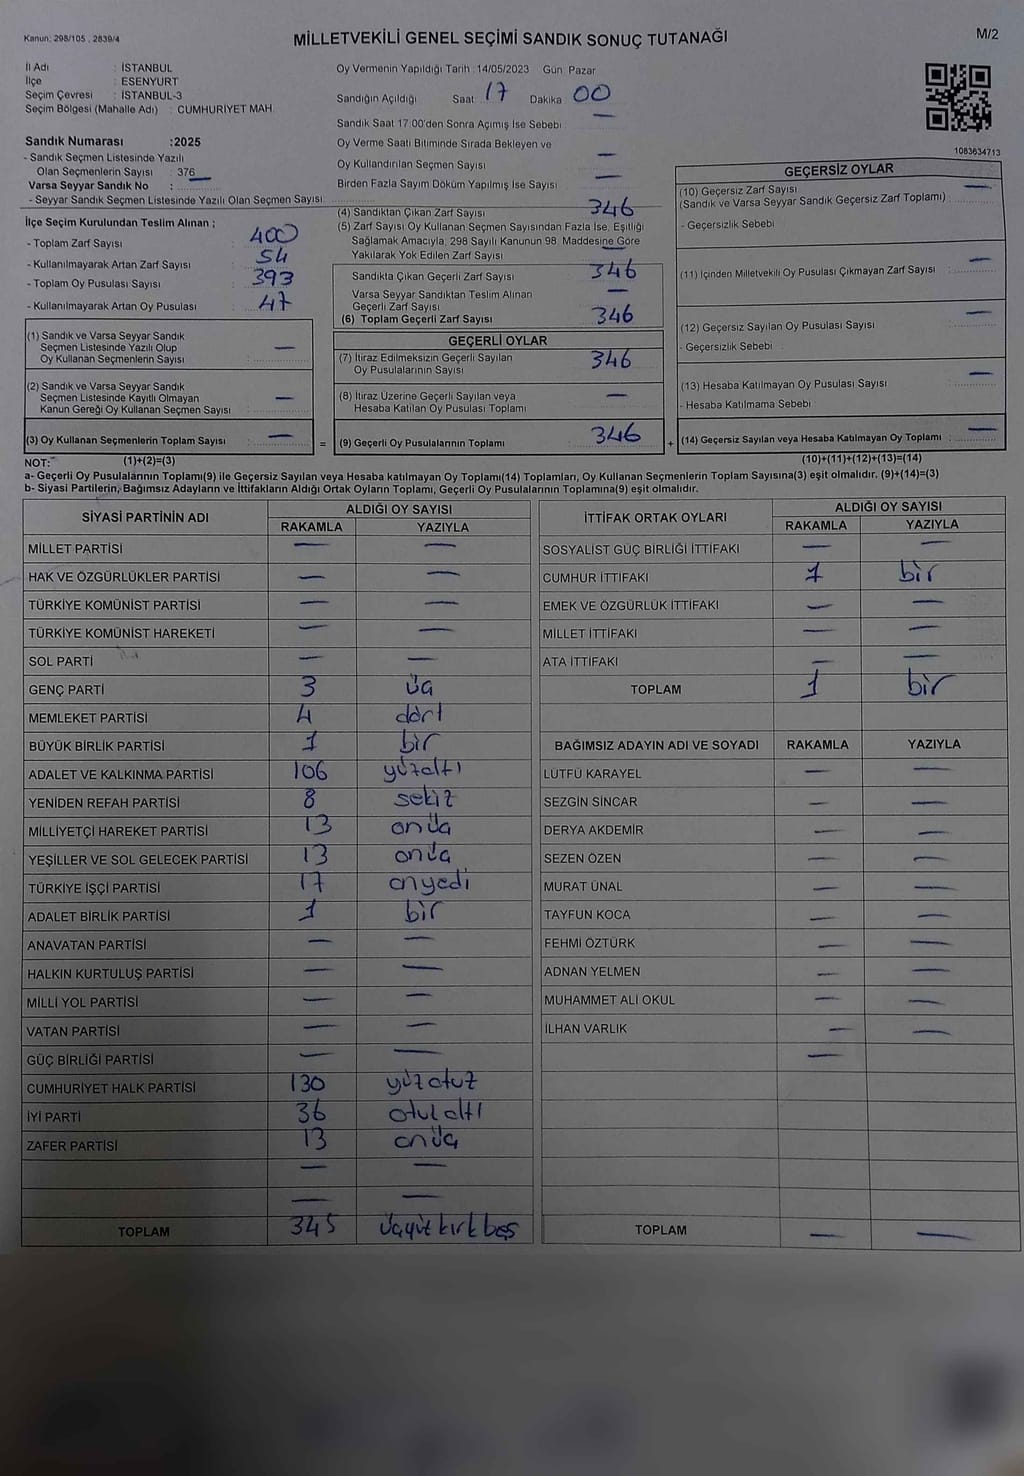 Kanun: 298/105, 2839/4
MİLLETVEKİLİ GENEL SEÇİMİ SANDIK SONUÇ TUTANAĞI
M/2
İl Adı : İSTANBUL
İlçe : ESENYURT
Seçim Çevresi : İSTANBUL-3
Seçim Bölgesi (Mahalle Adı) : CUMHURİYET MAH.
Sandık Numarası :2025
- Sandık Seçmen Listesinde Yazılı
Olan Seçmenlerin Sayısı : 376
Varsa Seyyar Sandık No : —
- Seyyar Sandık Seçmen Listesinde Yazılı Olan Seçmen Sayısı
Oy Vermenin Yapıldığı Tarih :14/05/2023 Gün: Pazar
Sandığın Açıldığı Saat 17 Dakika 00
Sandık Saat 17.00'den Sonra Açımış İse Sebebi —
Oy Verme Saati Bitiminde Sırada Bekleyen ve
Oy Kullandırılan Seçmen Sayısı —
Birden Fazla Sayım Döküm Yapılmış İse Sayısı —
1083634713
İlçe Seçim Kurulundan Teslim Alınan ;
- Toplam Zarf Sayısı : 400
- Kullanılmayarak Artan Zarf Sayısı : 54
- Toplam Oy Pusulası Sayısı : 393
- Kullanılmayarak Artan Oy Pusulası : 47
(1) Sandık ve Varsa Seyyar Sandık
Seçmen Listesinde Yazılı Olup
Oy Kullanan Seçmenlerin Sayısı : —
(2) Sandık ve Varsa Seyyar Sandık
Seçmen Listesinde Kayıtlı Olmayan
Kanun Gereği Oy Kullanan Seçmen Sayısı : —
(3) Oy Kullanan Seçmenlerin Toplam Sayısı : — =
(4) Sandıktan Çıkan Zarf Sayısı 346
(5) Zarf Sayısı Oy Kullanan Seçmen Sayısından Fazla İse, Eşitliği
Sağlamak Amacıyla, 298 Sayılı Kanunun 98. Maddesine Göre
Yakılarak Yok Edilen Zarf Sayısı —
Sandıkta Çıkan Geçerli Zarf Sayısı 346
Varsa Seyyar Sandıktan Teslim Alınan
Geçerli Zarf Sayısı —
(6) Toplam Geçerli Zarf Sayısı 346
GEÇERLİ OYLAR
(7) İtiraz Edilmeksizin Geçerli Sayılan
Oy Pusulalarının Sayısı 346
(8) İtiraz Üzerine Geçerli Sayılan veya
Hesaba Katılan Oy Pusulası Toplamı —
(9) Geçerli Oy Pusulalarının Toplamı 346 +
GEÇERSİZ OYLAR
(10) Geçersiz Zarf Sayısı —
(Sandık ve Varsa Seyyar Sandık Geçersiz Zarf Toplamı)
- Geçersizlik Sebebi
(11) İçinden Milletvekili Oy Pusulası Çıkmayan Zarf Sayısı —
(12) Geçersiz Sayılan Oy Pusulası Sayısı —
- Geçersizlik Sebebi
(13) Hesaba Katılmayan Oy Pusulası Sayısı —
- Hesaba Katılmama Sebebi
(14) Geçersiz Sayılan veya Hesaba Katılmayan Oy Toplamı : —
NOT: (1)+(2)=(3) (10)+(11)+(12)+(13)=(14)
a- Geçerli Oy Pusulalarının Toplamı(9) ile Geçersiz Sayılan veya Hesaba katılmayan Oy Toplamı(14) Toplamları, Oy Kullanan Seçmenlerin Toplam Sayısına(3) eşit olmalıdır. (9)+(14)=(3)
b- Siyasi Partilerin, Bağımsız Adayların ve İttifakların Aldığı Ortak Oyların Toplamı, Geçerli Oy Pusulalarının Toplamına(9) eşit olmalıdır.
SİYASİ PARTİNİN ADI ALDIĞI OY SAYISI
RAKAMLA YAZIYLA
MİLLET PARTİSİ — —
HAK VE ÖZGÜRLÜKLER PARTİSİ — —
TÜRKİYE KOMÜNİST PARTİSİ — —
TÜRKİYE KOMÜNİST HAREKETİ — —
SOL PARTİ — —
GENÇ PARTİ 3 üç
MEMLEKET PARTİSİ 4 dört
BÜYÜK BİRLİK PARTİSİ 1 bir
ADALET VE KALKINMA PARTİSİ 106 yüzaltı
YENİDEN REFAH PARTİSİ 8 sekiz
MİLLİYETÇİ HAREKET PARTİSİ 13 onüç
YEŞİLLER VE SOL GELECEK PARTİSİ 13 onüç
TÜRKİYE İŞÇİ PARTİSİ 17 onyedi
ADALET BİRLİK PARTİSİ 1 bir
ANAVATAN PARTİSİ — —
HALKIN KURTULUŞ PARTİSİ — —
MİLLİ YOL PARTİSİ — —
VATAN PARTİSİ — —
GÜÇ BİRLİĞİ PARTİSİ — —
CUMHURİYET HALK PARTİSİ 130 yüzotuz
İYİ PARTİ 36 otuzaltı
ZAFER PARTİSİ 13 onüç
— —
— —
TOPLAM 345 üçyüzkırkbeş
İTTİFAK ORTAK OYLARI ALDIĞI OY SAYISI
RAKAMLA YAZIYLA
SOSYALİST GÜÇ BİRLİĞİ İTTİFAKI — —
CUMHUR İTTİFAKI 1 bir
EMEK VE ÖZGÜRLÜK İTTİFAKI — —
MİLLET İTTİFAKI — —
ATA İTTİFAKI — —
TOPLAM 1 bir
BAĞIMSIZ ADAYIN ADI VE SOYADI RAKAMLA YAZIYLA
LÜTFÜ KARAYEL — —
SEZGİN SİNCAR — —
DERYA AKDEMİR — —
SEZEN ÖZEN — —
MURAT ÜNAL — —
TAYFUN KOCA — —
FEHMİ ÖZTÜRK — —
ADNAN YELMEN — —
MUHAMMET ALİ OKUL — —
İLHAN VARLIK — —
—
TOPLAM — —